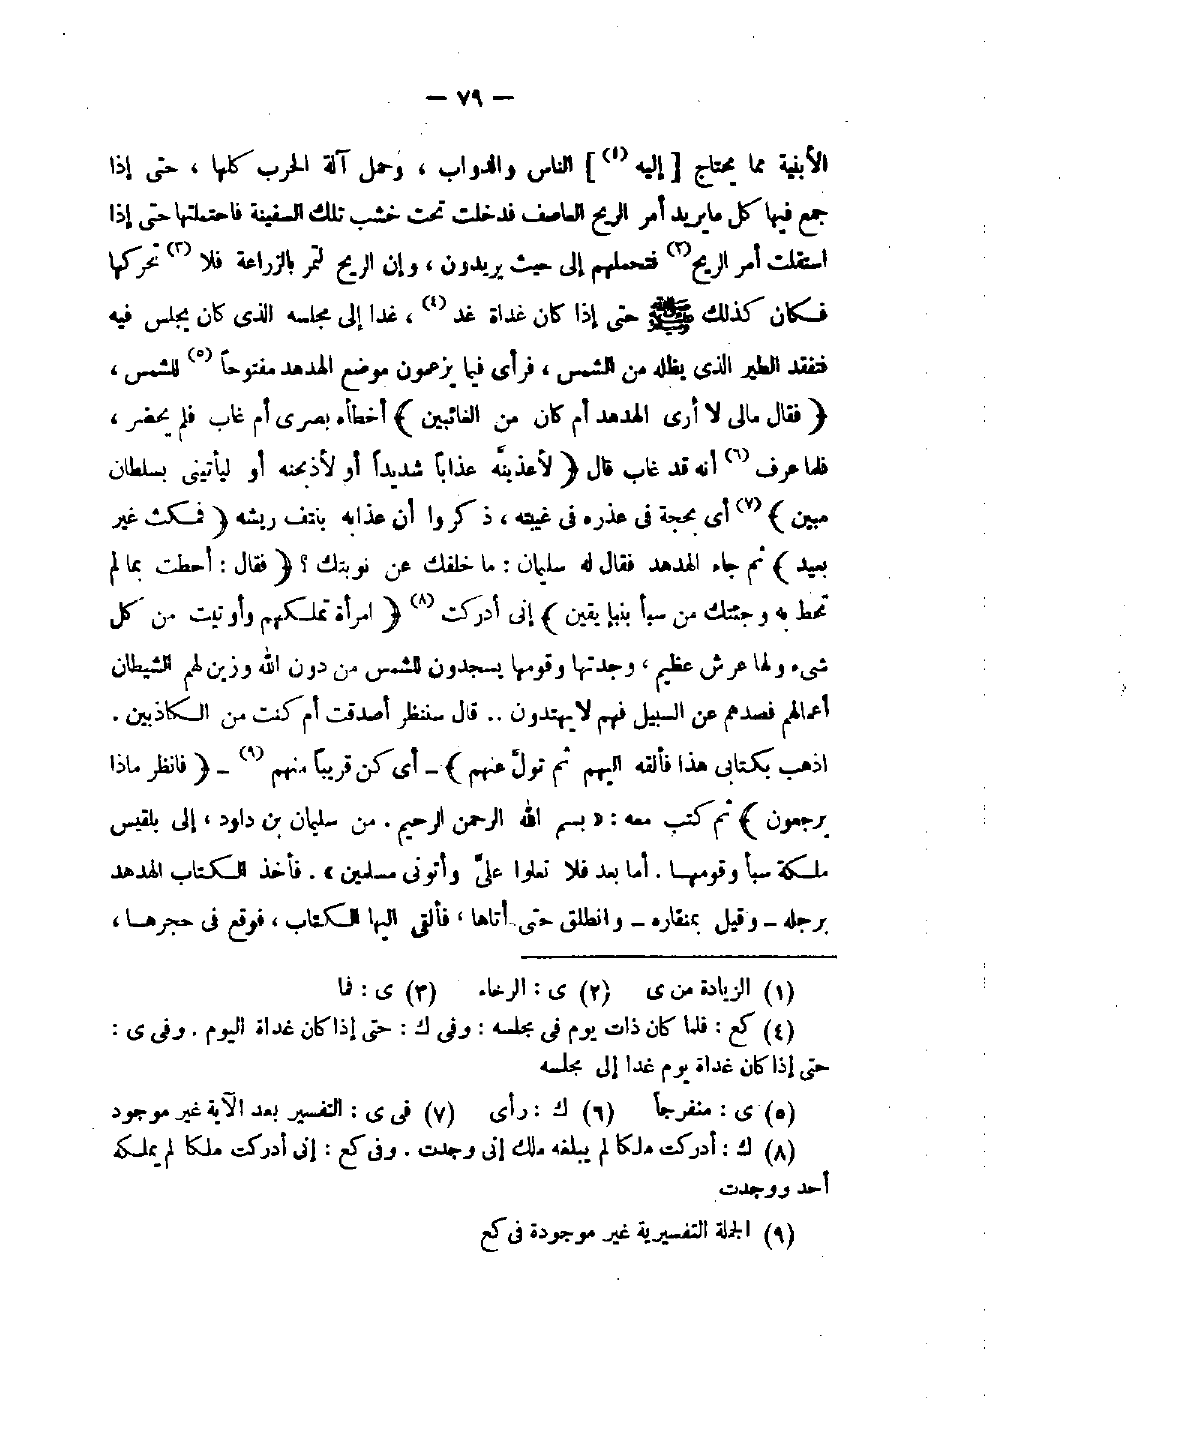 — ٧٩ —
الأبنية مما يحتاج [ إليه (١) ] الناس والدواب ، وحمل آلة الحرب كلها ، حتى إذا
جمع فيها كل مايريد أمر الريح العاصف فدخلت تحت خشب تلك السفينة فاحتملتها حتى إذا
استقلت أمر الريح (٢) فتحملهم إلى حيث يريدون ، وإن الريح لتمر بالزراعة فلا (٣) تحركها
فكان كذلك ﷺ حتى إذا كان غداة غد (٤) ، غدا إلى مجلسه الذى كان يجلس فيه
فتفقد الطير الذى يظله من الشمس ، فرأى فيما يزعمون موضع الهدهد مفتوحاً (٥) للشمس ،
﴿ فقال مالى لا أرى الهدهد أم كان من الغائبين ﴾ أخطأه بصرى أم غاب فلم يحضر ،
فلما عرف (٦) أنه قد غاب قال ﴿ لأعذبنَّه عذاباً شديداً أو لأذبحنه أو ليأتينى بسلطان
مبين ﴾ (٧) أى بحجة فى عذره فى غيبته ، ذكروا أن عذابه بنتف ريشه ﴿ فمكث غير
بعيد ﴾ ثم جاء الهدهد فقال له سليمان : ما خلفك عن نوبتك ؟ ﴿ فقال : أحطت بما لم
تحط به وجئتك من سبأ بنبإ يقين ﴾ إنى أدركت (٨) ﴿ امرأة تملكهم وأوتيت من كل
شىء ولها عرش عظيم ، وجدتها وقومها يسجدون للشمس من دون الله وزين لهم الشيطان
أعمالهم فصدهم عن السبيل فهم لايهتدون .. قال سننظر أصدقت أم كنت من الكاذبين .
اذهب بكتابى هذا فألقه اليهم ثم تولَّ عنهم ﴾ ــ أى كن قريباً منهم (٩) ــ ﴿ فانظر ماذا
يرجعون ﴾ ثم كتب معه : « بسم الله الرحمن الرحيم . من سليمان بن داود ، إلى بلقيس
ملكة سبأ وقومها . أما بعد فلا تعلوا علىَّ وأتونى مسلمين » . فأخذ الكتاب الهدهد
برجله ــ وقيل بمنقاره ــ وانطلق حتى أتاها ، فألقى اليها الكتاب ، فوقع فى حجرها ،
(١) الزيادة من ى (٢) ى : الرخاء (٣) ى : فما
(٤) كع : فلما كان ذات يوم فى مجلسه : وفى ك : حتى إذا كان غداة اليوم . وفى ى :
حتى إذا كان غداة يوم غدا إلى مجلسه
(٥) ى : منفرجاً (٦) ك : رأى (٧) فى ى : التفسير بعد الآية غير موجود
(٨) ك : أدركت ملكا لم يبلغه ملك إنى وجدت . وفى كع : إنى أدركت ملكا لم يملكه
أحد ووجدت
(٩) الجملة التفسيرية غير موجودة فى كع